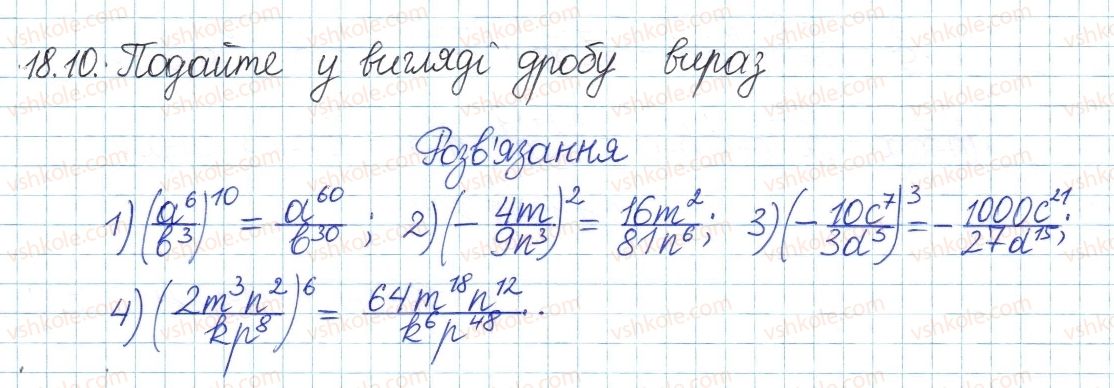 18.10. Подайте у вигляді дробу вираз
Розв'язання
1) (a⁶/b³)¹⁰ = a⁶⁰/b³⁰ ; 2) (- 4m/9n³)² = 16m²/81n⁶ ; 3) (- 10c⁷/3d⁵)³ = - 1000c²¹/27d¹⁵ ;
4) (2m³n²/kp⁸)⁶ = 64m¹⁸n¹²/k⁶p⁴⁸ .